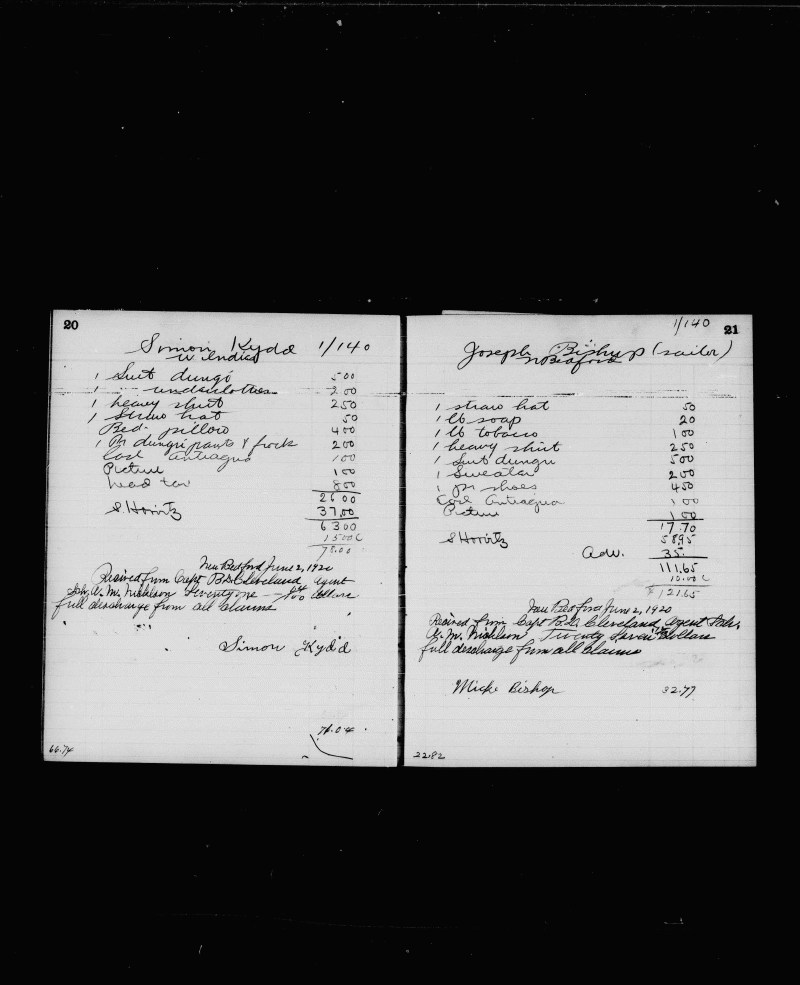 20
Simon Kydd 1/140
W. Indies
1 Suit dungi 500
1 underclothes 200
1 heavy shirt 250
1 Straw hat 50
Bed. pillow 400
1 Pr dungri pants & frock 200
Cash Antiagua 100
Picture 100
head tax 800
26 00
S. Horvitz 37.00
63 00
15 00 C
78.00
New Bedford June 2, 1920
Recived from Capt B.D. Cleveland Agent
Sch. A. M. Nicholson Seventy one 04/100 dollars
full descharge from all claims
Simon Kydd
71.04
66.74
1/140 21
Joseph Bishup (sailor)
N Bedford
1 straw hat 50
1 lb soap 20
1 lb tobacco 100
1 heavy shirt 250
1 Suit dungri 500
1 Sweater 200
1 pr shoes 450
Cash Antiagua 100
Picture 100
17.70
S Horvitz 58.95
Adv. 35.
111.65
10.00 C
$ 121.65
New Bedford June 2, 1920
Recived from Capt B.D. Cleveland, Agent Sch.
A. M. Nicholson Twenty Seven Dollars
full descharge from all claims
Mick Bishop 32.77
22.82